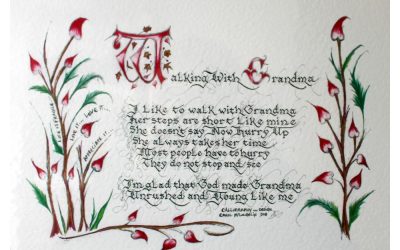 Walking With Grandma
I Like to walk with Grandma
Her steps are short Like mine
She doesn't say Now Hurry Up
She always takes her time
Most people have to hurry
They do not stop and see
I'm glad that God made Grandma
Unrushed and Young Like me
CALLIGRAPHY and DESIGN